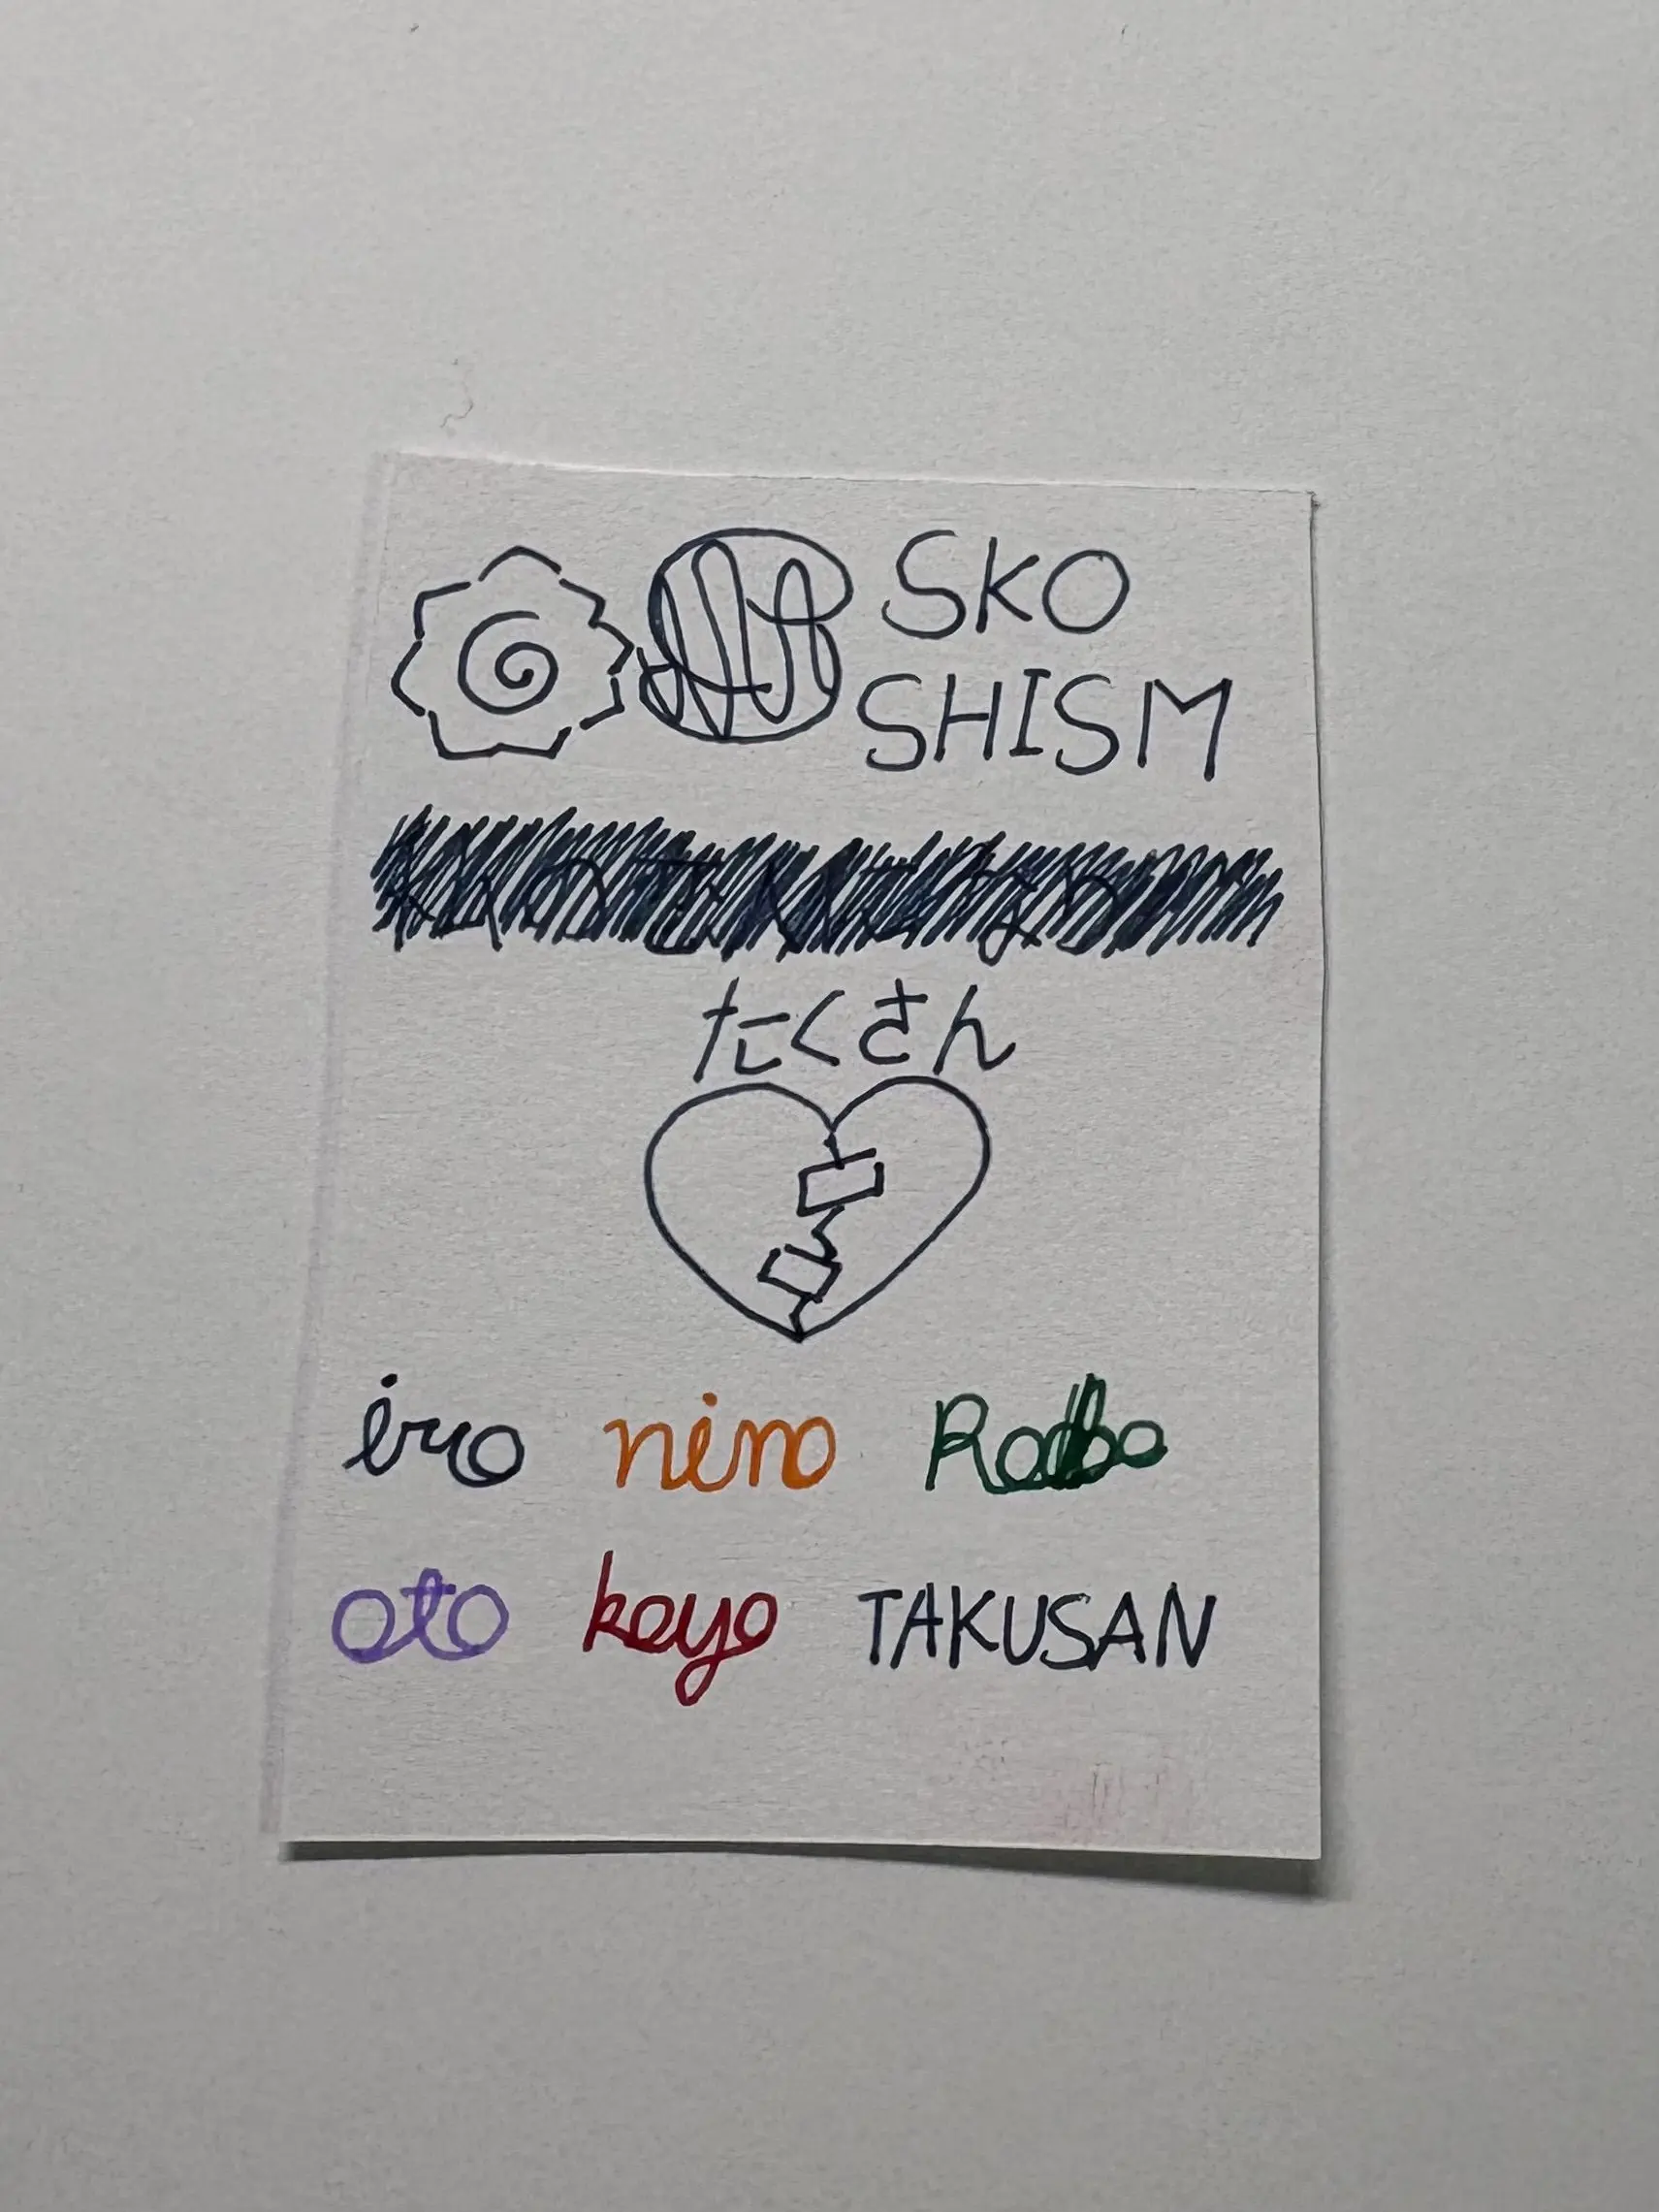 SKO
SHISM
たくさん
iro nino
oto keyo TAKUSAN